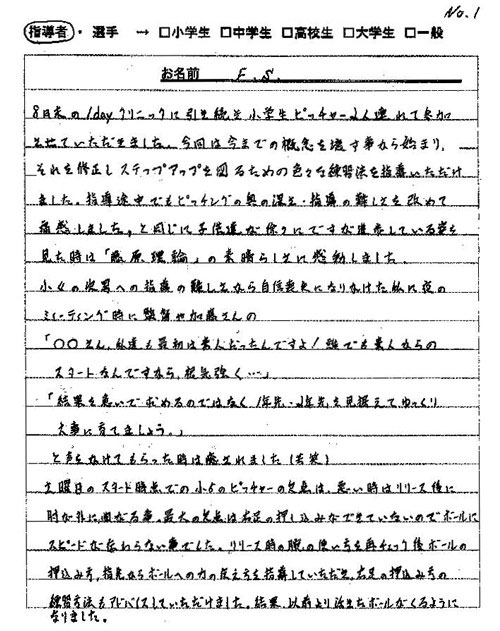 No.1
指導者・ 選手 → □小学生 □中学生 □高校生 □大学生 □一般
お名前 F.S.
8月末の1dayクリニックに引き続き小学生ピッチャー2人連れて参加
させていただきました。今回は今までの概念を壊す事から始まり、
それを修正しステップアップを図るための色々な練習法を指導いただけ
ました。指導途中でもピッチングの奥の深さ・指導の難しさを改めて
痛感しました。と同じに子供達が徐々にですが進歩している姿を
見た時は「藤原理論」の素晴らしさに感動しました。
小女の次男への指導の難しさから自信喪失になりかけた私に夜の
ミーティング時に監督や加藤さんの
「〇〇さん、私達も最初は素人だったんですよ！誰でも素人からの
スタートなんですから、根気強く…」
「結果を急いで求めるのではなく1年先・2年先を見据えてゆっくり
大事に育てましょう。」
と声をかけてもらった時は癒されました(苦笑)
土曜日のスタート時点での小5のピッチャーの欠点は、悪い時はリリース後に
肘が外に曲がる事、最大の欠点は右足の押し込みができていないのでボールに
スピードが伝わらない事でした。リリース時の腕の使い方を再チェック後ボールの
押込み方、指先からボールへの力の伝え方を指導していただき、右足の押込み方の
練習方法もアドバイスしていただけました。結果、以前より活きたボールがくるように
なりました。